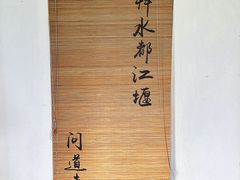 水都江堰
问道